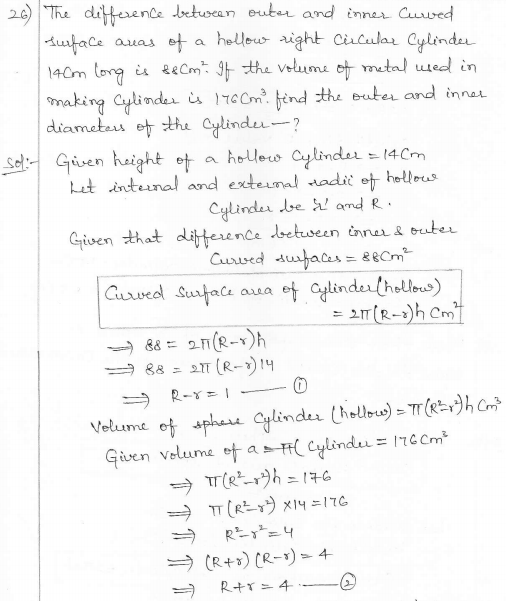 26) The difference between outer and inner Curved
surface areas of a hollow right Circular Cylinder
14Cm long is 88Cm². If the volume of metal used in
making Cylinder is 176Cm³. find the outer and inner
diameters of the Cylinder —?
Sol:- Given height of a hollow Cylinder = 14Cm
Let internal and external radii of hollow
Cylinder be 'r' and R.
Given that difference between inner & outer
Curved surfaces = 88Cm²
Curved Surface area of Cylinder (hollow)
= 2π(R-r)h Cm²
⟹ 88 = 2π(R-r)h
⟹ 88 = 2π(R-r)14
⟹ R-r = 1 — ①
Volume of sphere Cylinder (hollow) = π(R²-r²)h Cm³
Given volume of a = π( Cylinder = 176Cm³
⟹ π(R²-r²)h = 176
⟹ π(R²-r²) ×14 = 176
⟹ R²-r² = 4
⟹ (R+r)(R-r) = 4
⟹ R+r = 4 — ②